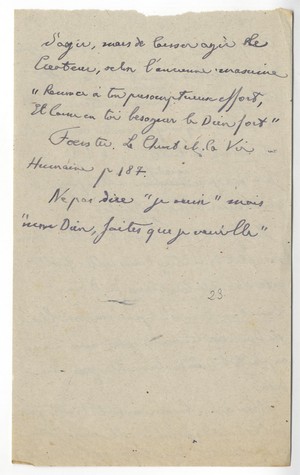 d'agir, mais de laisser agir le
Créateur, selon l'ancienne maxime
"Renonce à ton présomptueux effort,
Et laisse en toi besogner le Dieu fort"
Foerster. Le Christ et la Vie
Humaine p 187.
Ne pas dire "je veux" mais
"mon Dieu, faites que je veuille"
23